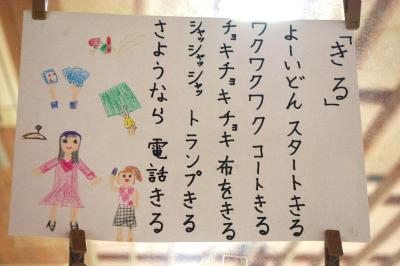 「きる」
よーいどん スタートきる
ワクワクワク コートきる
チョキチョキチョキ 布をきる
シャッシャッシャッ トランプきる
さようなら 電話きる